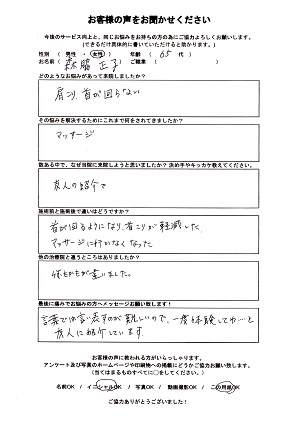 お客様の声をお聞かせください
今後のサービス向上と、同じお悩みをお持ちの方の為にご協力よろしくお願いします。
(できるだけ具体的に書いていただけると助かります。)
性別 ( 男性 ・ 女性 ) 年齢 ( 65 代 )
お名前 ( 森脇 正子 ) ご職業 ( )
どのようなお悩みがあって来院しましたか?
肩こり、首が回らない
そのお悩みを解決するためにこれまで何をされてきましたか?
マッサージ
数ある中で、なぜ当院に来院しようと思いましたか? 決め手やキッカケ教えてください。
友人の紹介で
施術前と施術後で違いはどうですか?
首が回るようになり、首こりが軽減した
マッサージに行かなくなった
他の治療院と違うところはありましたか?
何もかもが違いました。
最後に痛みでお悩みの方へメッセージお願い致します!
言葉では言い表すのが難しいので、一度体験してみてと
友人に紹介しています。
お客様の声に救われる方がいらっしゃいます。
アンケート及び写真のホームページや印刷物への掲載にどうかご協力お願い致します。
(当てはまるものすべてに○をしてください)
名前OK / イニシャルOK / 写真OK / 動画撮影OK / この用紙OK
ご協力ありがとうございました!